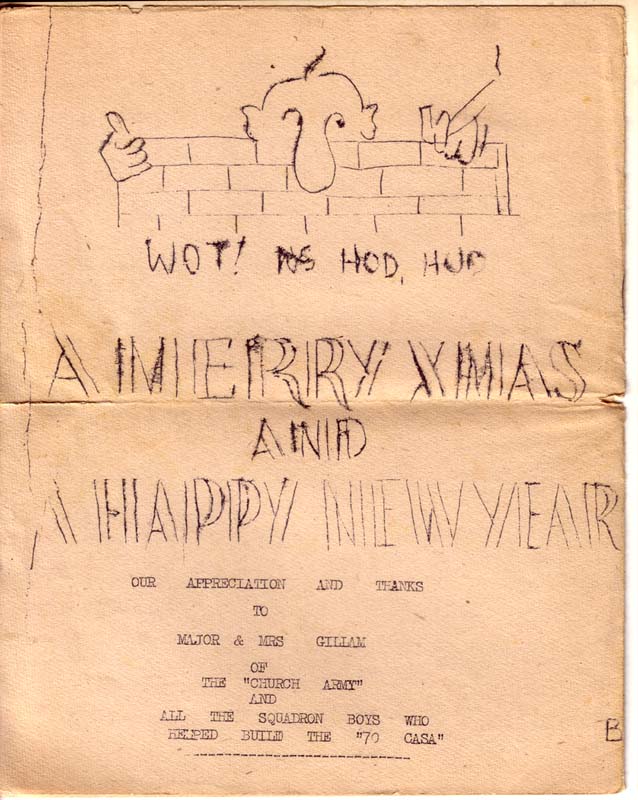 WOT! NO HOD, HUD
A MERRY XMAS
AND
A HAPPY NEW YEAR
OUR APPRECIATION AND THANKS
TO
MAJOR & MRS GILLAM
OF
THE "CHURCH ARMY"
AND
ALL THE SQUADRON BOYS WHO
HELPED BUILD THE "70 CASA"
B